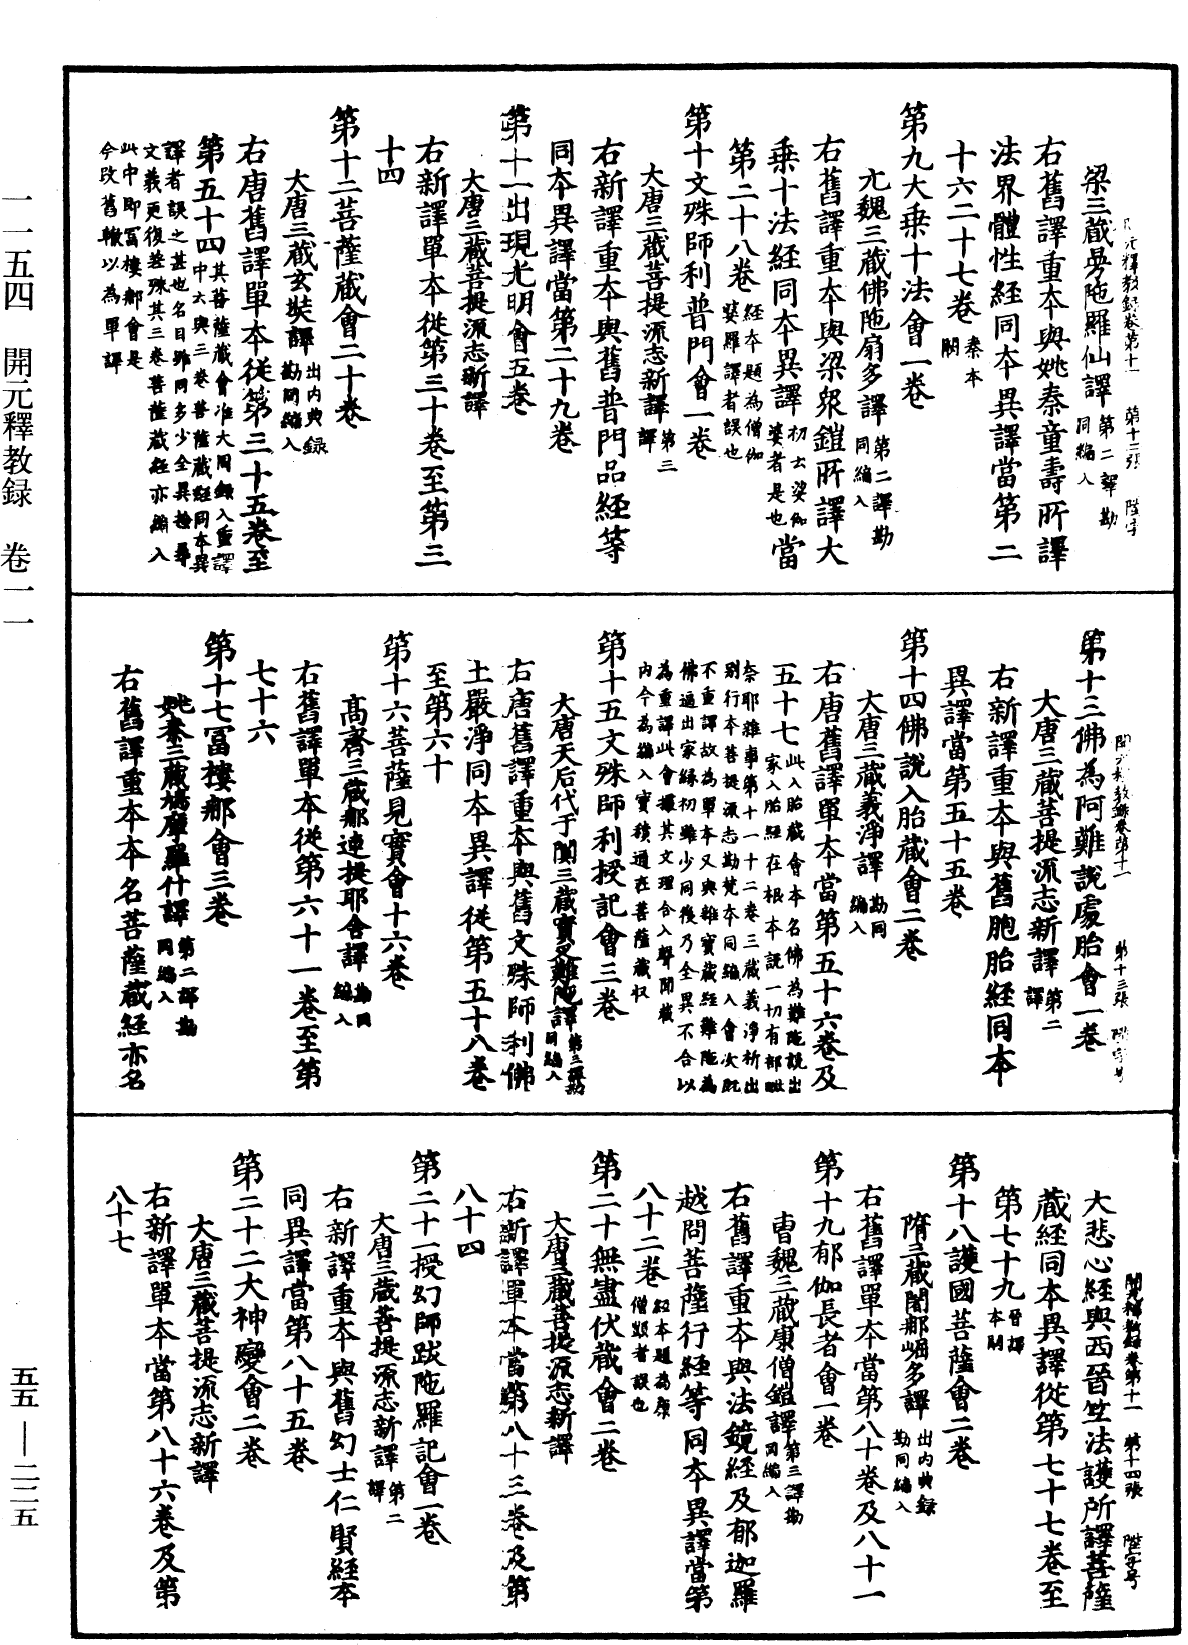 梁三藏曼陁羅仙譯第二譯勘同編入
右舊譯重本與姚秦童壽所譯
法界體性經同本異譯當第二
十六二十七卷秦本闕
第九大乘十法會一卷
元魏三藏佛陁扇多譯第二譯勘同編入
右舊譯重本與梁衆鎧所譯大
乘十法經同本異譯初云娑伽婆者是也當
第二十八卷經本題為僧伽婆羅譯者誤也
第十文殊師利普門會一卷
大唐三藏菩提流志新譯第三譯
右新譯重本與舊普門品經等
同本異譯當第二十九卷
第十一出現光明會五卷
大唐三藏菩提流志新譯
右新譯單本從第三十卷至第三
十四
第十二菩薩藏會二十卷
大唐三藏玄奘譯出內典錄勘同編入
右唐舊譯單本從第三十五卷至
第五十四其菩薩藏會准大周錄入重譯中六與三卷菩薩藏經同本異
譯者誤之甚也名目雖同多少全異撿尋
文義更復差殊其三卷菩薩藏經亦編入
此中即冨樓那會是
今改舊轍以為單譯
第十三佛為阿難說處胎會一卷
大唐三藏菩提流志新譯第二譯
右新譯重本與舊胞胎經同本
異譯當第五十五卷
第十四佛說入胎藏會二卷
大唐三藏義淨譯勘同編入
右唐舊譯單本當第五十六卷及
五十七此入胎藏會本名佛為難陁說出家入胎經在根本說一切有部毗
奈耶雜事第十一十二卷三藏義淨析出
別行本菩提流志勘梵本同編入會次旣
不重譯故為單本又與雜寶藏經難陁為
佛逼出家緣初雖少同後乃全異不合以
為重譯此會據其文理合入聲聞藏
內今為編入寶積通在菩薩藏収
第十五文殊師利授記會三卷
大唐天后代于闐三藏實叉難陁譯第三譯勘同編入
右唐舊譯重本與舊文殊師利佛
土嚴淨同本異譯從第五十八卷
至第六十
第十六菩薩見實會十六卷
高齊三藏那連提耶舍譯勘同編入
右舊譯單本從第六十一卷至第
七十六
第十七冨樓那會三卷
姚秦三藏鳩摩羅什譯第二譯勘同編入
右舊譯重本本名菩薩藏經亦名
大悲心經與西晉竺法護所譯菩薩
藏經同本異譯從第七十七卷至
第七十九晉譯本闕
第十八護國菩薩會二卷
隋三藏闍那崛多譯出內典錄勘同編入
右舊譯單本當第八十卷及八十一
第十九郁伽長者會一卷
曹魏三藏康僧鎧譯第三譯勘同編入
右舊譯重本與法鏡經及郁迦羅
越問菩薩行經等同本異譯當第
八十二卷經本題為康僧鎧者誤也
第二十無盡伏藏會二卷
大唐三藏菩提流志新譯
右新譯單本當第八十三卷及第
八十四
第二十一授幻師跋陁羅記會一卷
大唐三藏菩提流志新譯第二譯
右新譯重本與舊幻士仁賢經本
同異譯當第八十五卷
第二十二大神變會二卷
大唐三藏菩提流志新譯
右新譯單本當第八十六卷及第
八十七
開元釋教錄卷第十一 第十二張 陛字
開元釋教錄卷第十一 第十三張 陛字号
開元釋教錄卷第十一 第十四張 陛字号
一一五四 開元釋教録 卷一一
五五—二二五